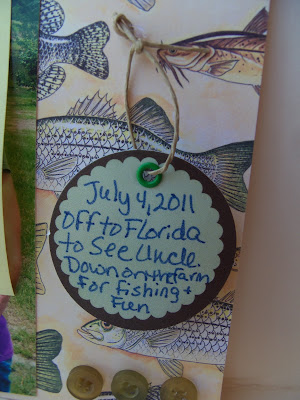 July 4, 2011
Off to Florida
to See Uncle.
Down on the farm
for fishing +
Fun